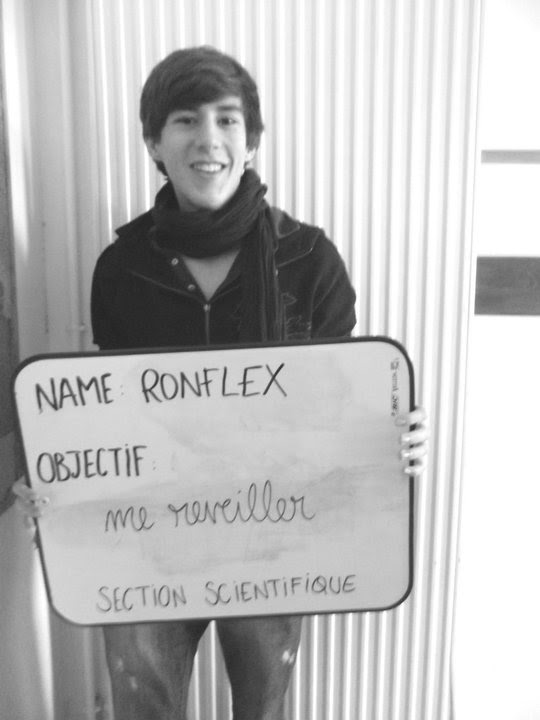 NAME: RONFLEX
OBJECTIF:
me reveiller
SECTION SCIENTIFIQUE